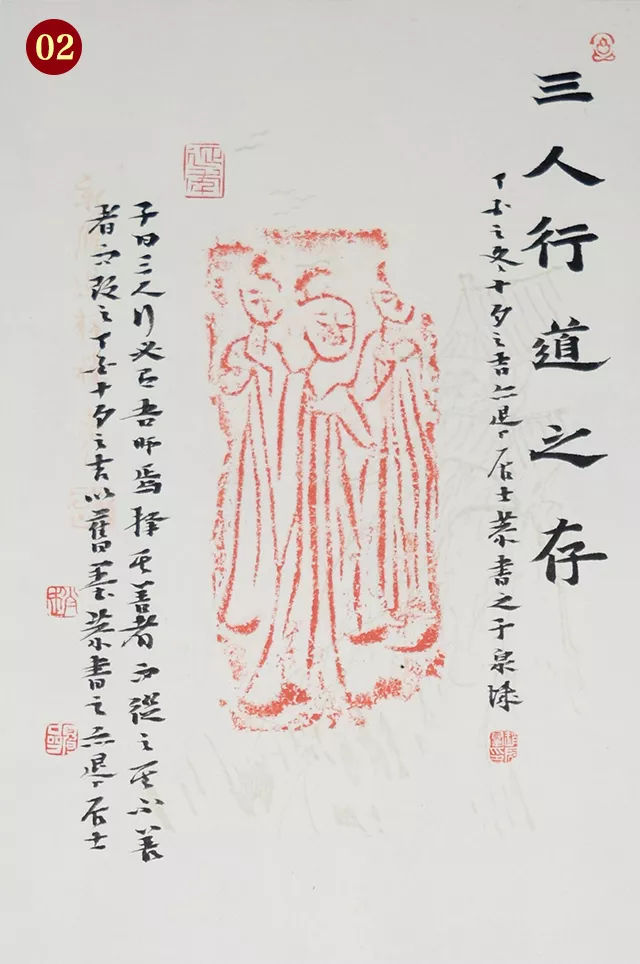 02
三人行道之存
丁酉之冬十月之吉亦退居士恭书之于泉城
子曰三人行必有吾師焉擇其善者而從之其不善
者而改之丁酉十月之吉以舊墨恭書之亦退居士